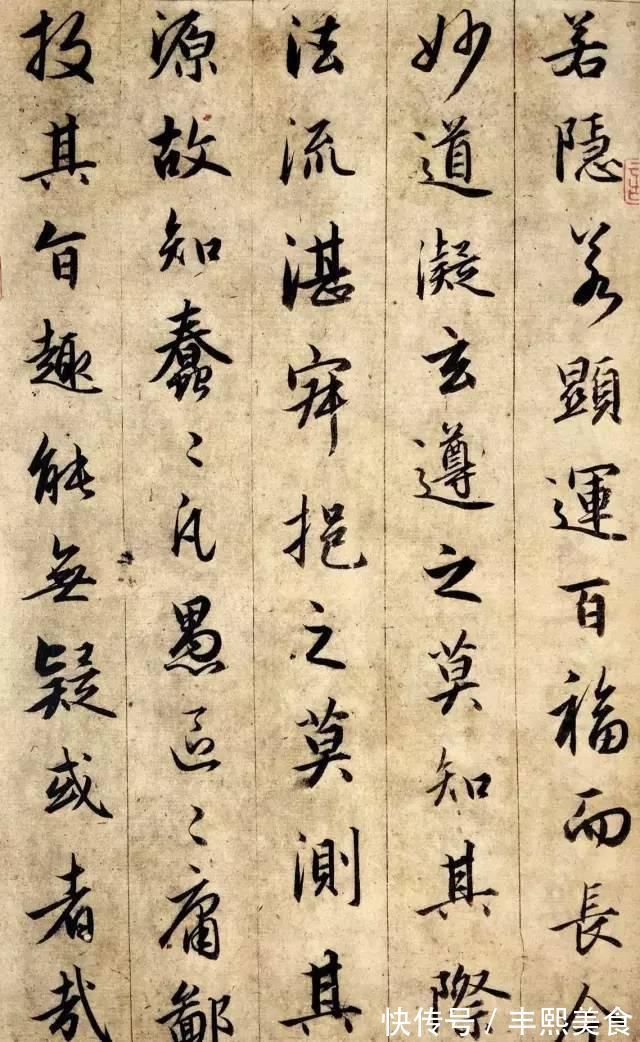 若隱若顯運百福而長今
妙道凝玄遵之莫知其際
法流湛寂挹之莫測其
源故知蠢〻凡愚區〻庸鄙
投其旨趣能無疑或者哉
快传号 / 丰熙美食